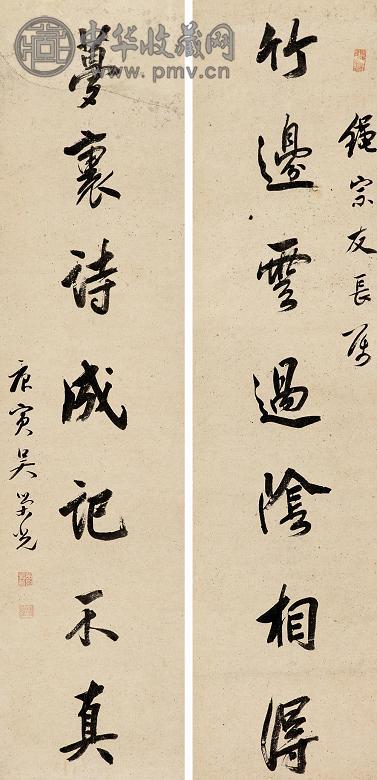 繩宗友長屬
竹邊雲過陰相得
夢裏詩成記不真
庚寅吴榮光
中华收藏网
www.pmv.cn